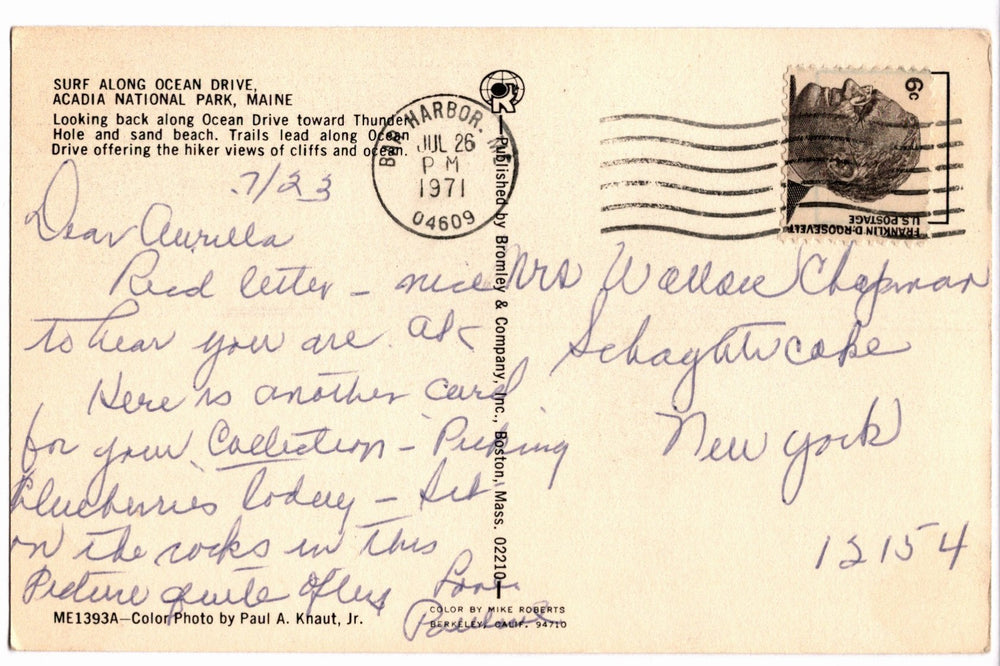 SURF ALONG OCEAN DRIVE,
ACADIA NATIONAL PARK, MAINE
Looking back along Ocean Drive toward Thunder
Hole and sand beach. Trails lead along Ocean
Drive offering the hiker views of cliffs and ocean.
BAR HARBOR, ME
JUL 26
PM
1971
04609
6c
FRANKLIN D. ROOSEVELT
U.S. POSTAGE
7/23
Dear Aurilla
Recd letter - nice
to hear you are ok
Here is another card
for your Collection - Picking
blueberries today - Sit
on the rocks in this
Picture quite often
Love
Pauline
Mrs Wallace Chapman
Schaghticoke
New York
12154
Published by Bromley & Company, Inc., Boston, Mass. 02210
ME1393A—Color Photo by Paul A. Knaut, Jr.
COLOR BY MIKE ROBERTS
BERKELEY, CALIF. 94710